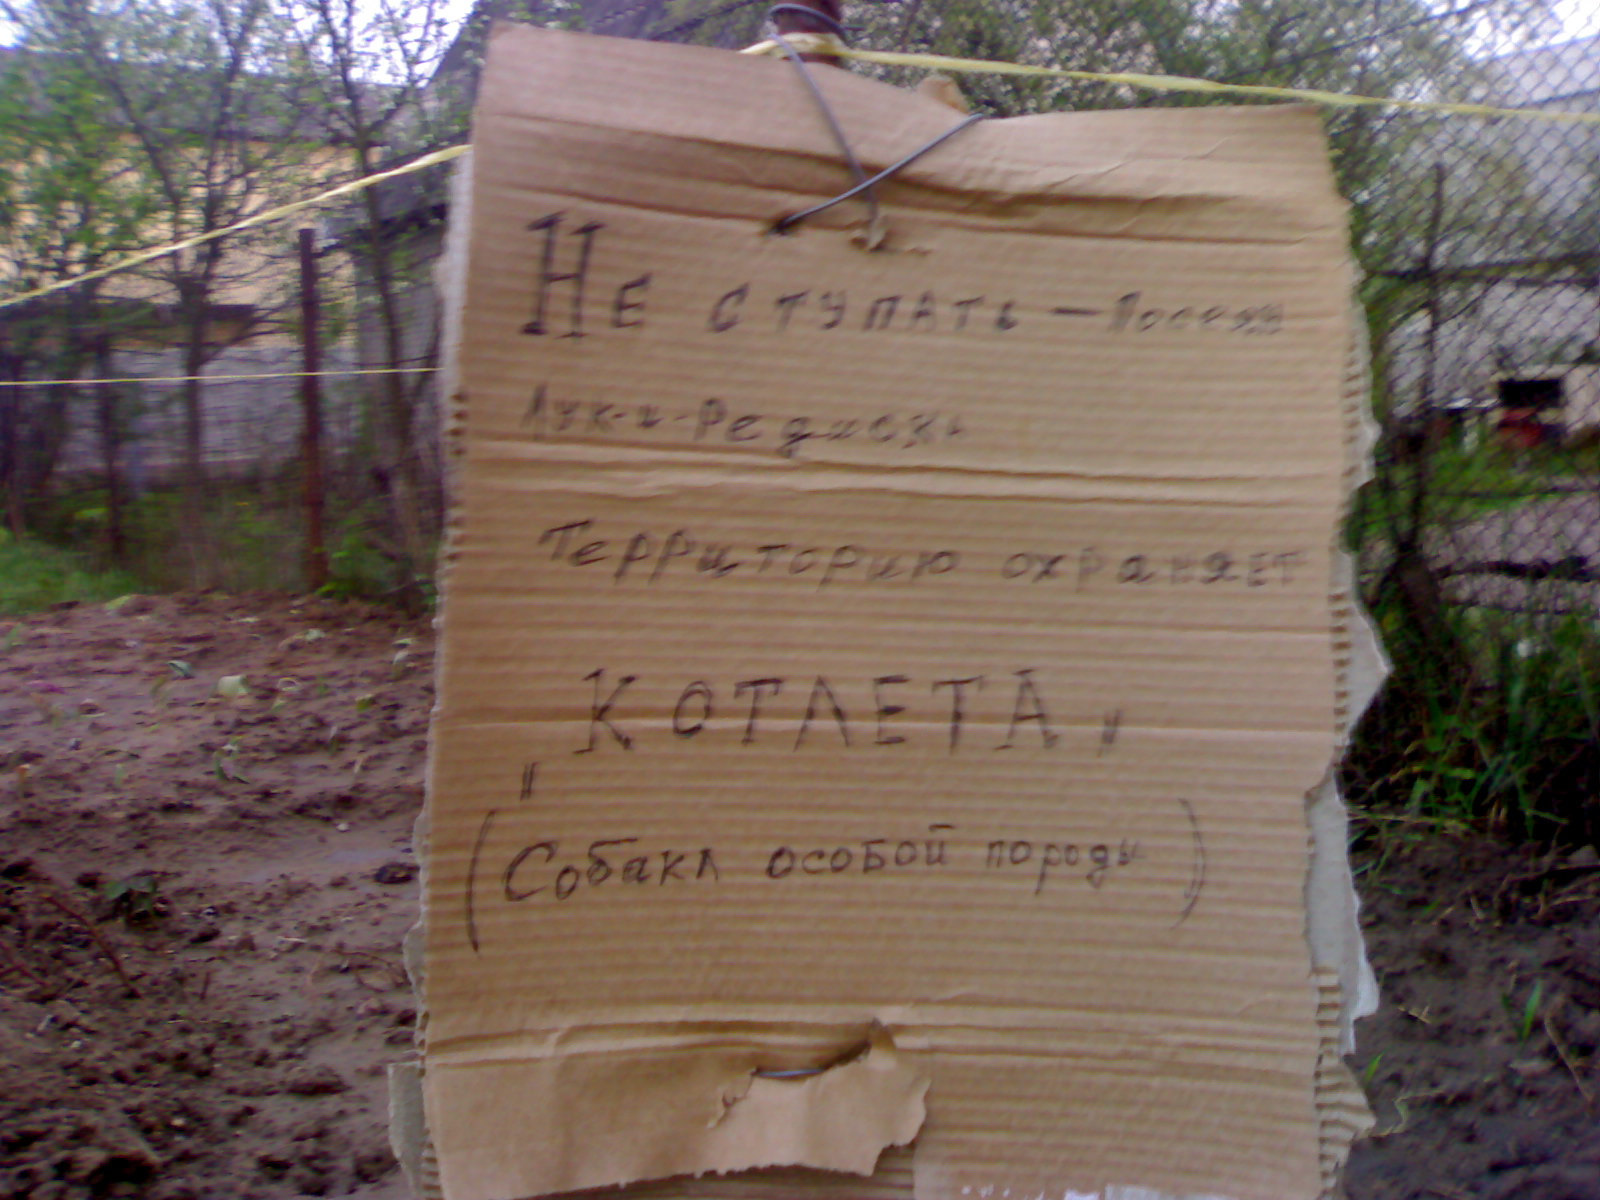 Не ступать — Посеян
Лук-и-Редиска
Территорию охраняет
„КОТЛЕТА"
(Собака особой породы)